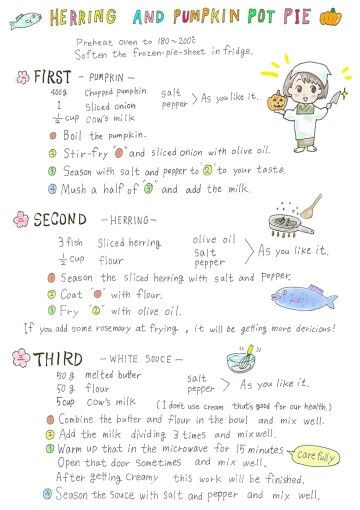 HERRING AND PUMPKIN POT PIE
Preheat oven to 180~200℃
Soften the frozen-pie-sheet in fridge.
FIRST - PUMPKIN -
400g Chopped pumpkin
1 Sliced onion
1/2 cup cow's milk
salt
pepper > As you like it.
① Boil the pumpkin.
② Stir-fry "①" and sliced onion with olive oil.
③ Season with salt and pepper to "②" to your taste.
④ Mush a half of "③" and add the milk.
SECOND - HERRING -
3 fish Sliced herring
1/2 cup flour
olive oil
salt
pepper > As you like it.
① Season the sliced herring with salt and pepper.
② Coat "①" with flour.
③ Fry "②" with olive oil.
If you add some rosemary at frying, it will be getting more dericious!
THIRD - WHITE SOUCE -
50g melted butter
50g flour
5cup cow's milk
salt
pepper > As you like it.
(I don't use cream that's good for our health)
① Combine the butter and flour in the bowl and mix well.
② Add the milk dividing 3 times and mix well.
③ Warm up that in the microwave for 15 minutes
carefully
Open that door sometimes and mix well.
After getting creamy this work will be finished.
④ Season the souce with salt and pepper and mix well.